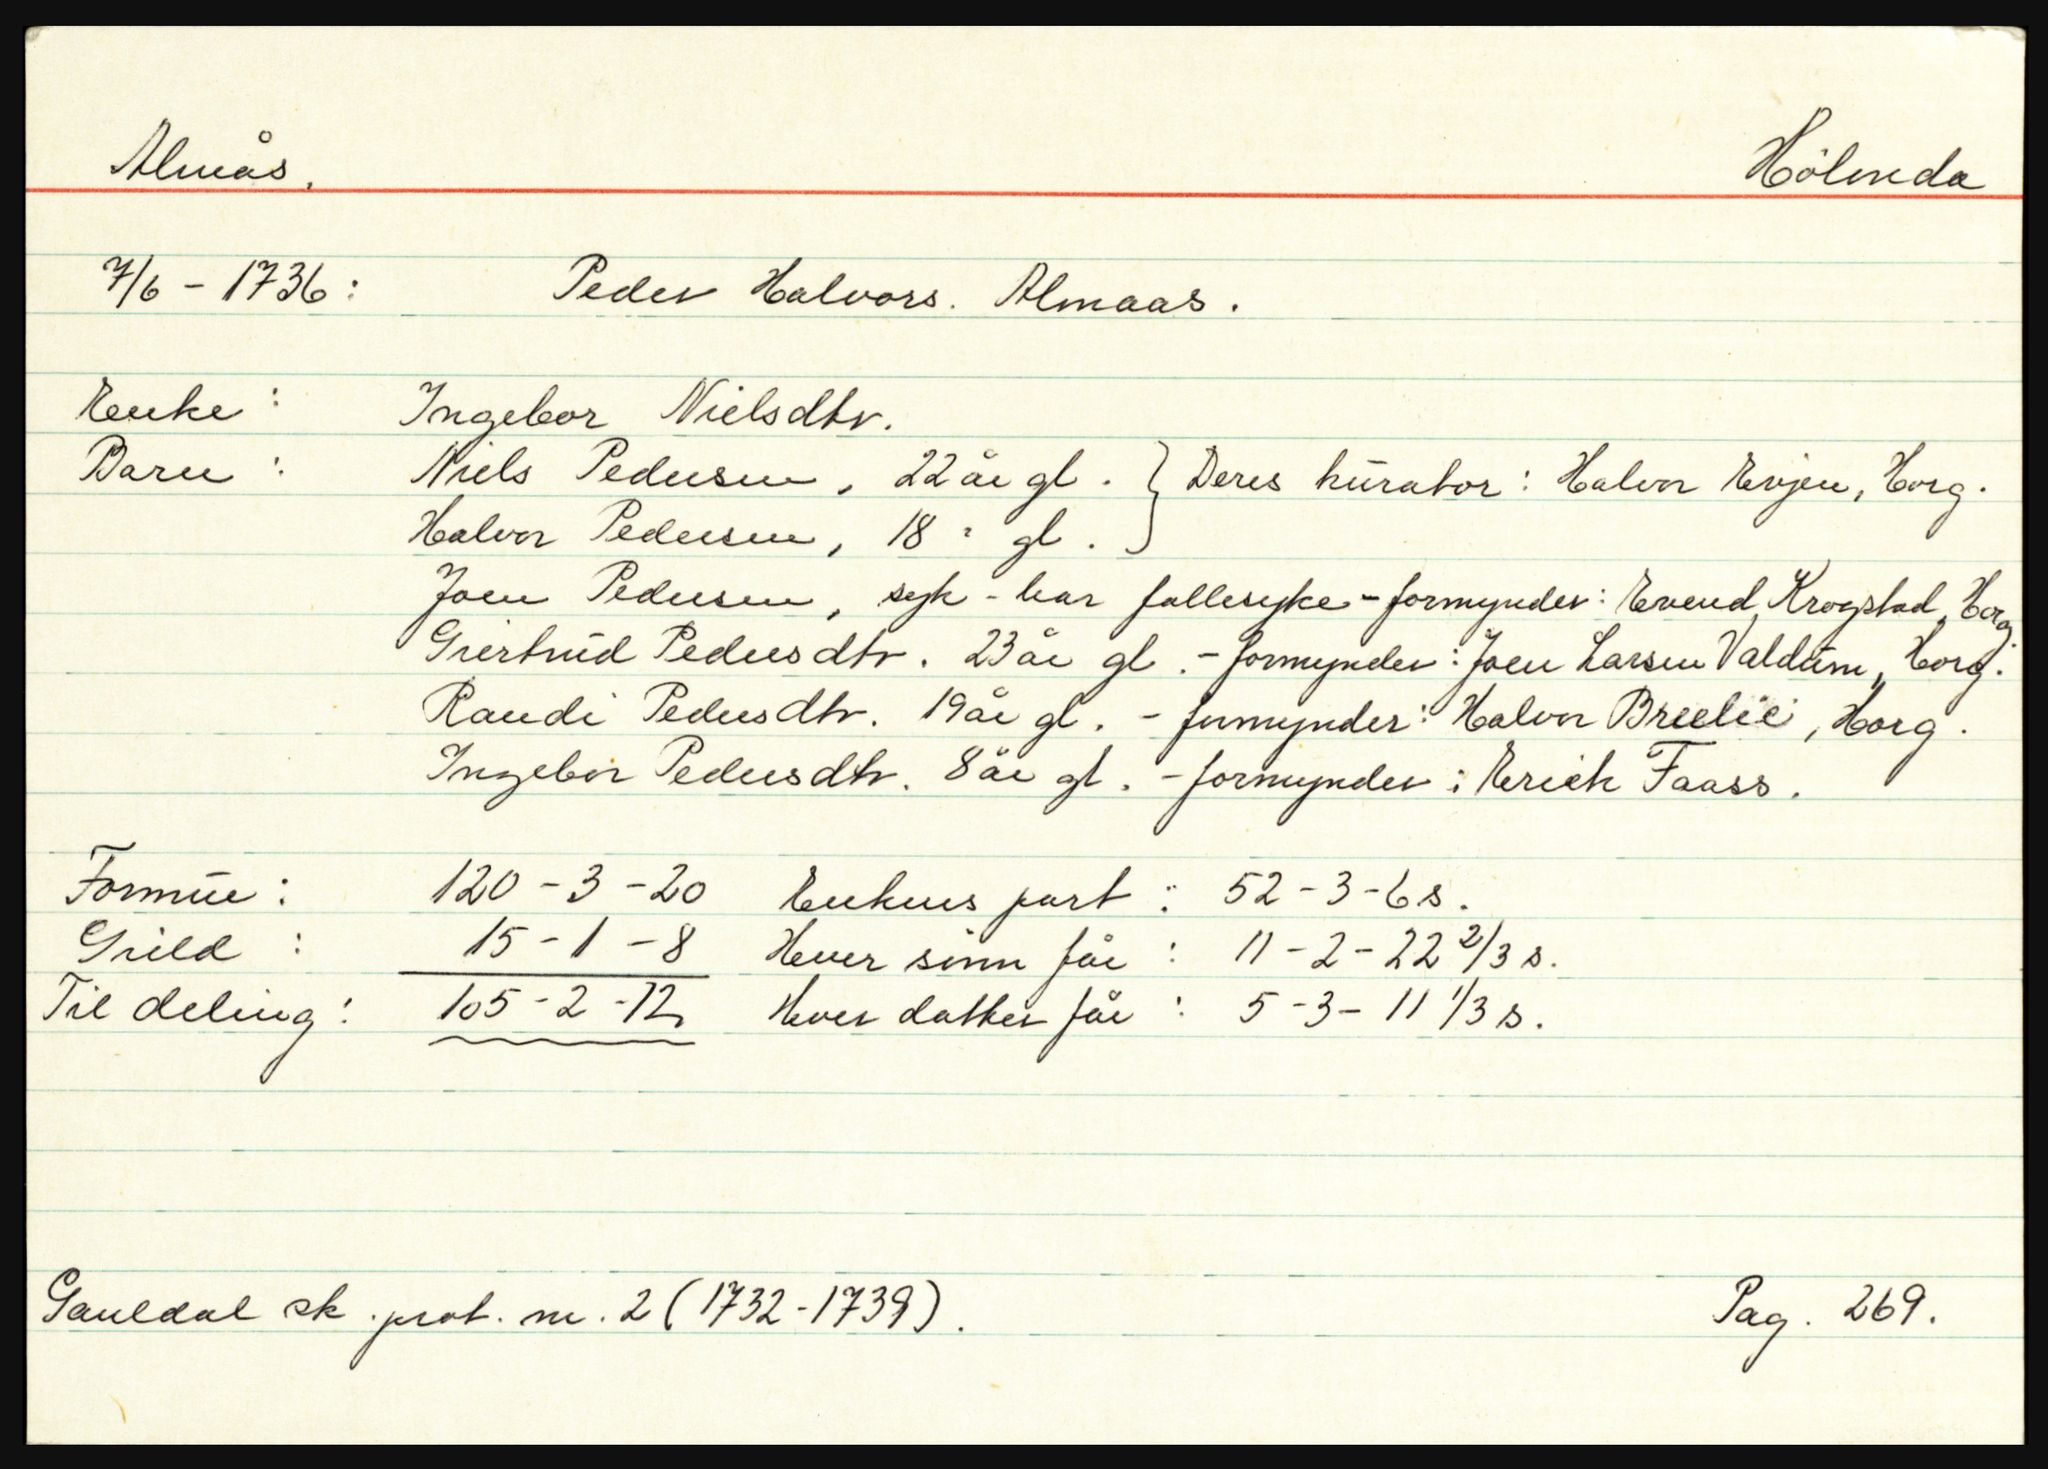 Almås. Hölmda
7/6 - 1736: Peder Halvors. Almaas.
Enke: Ingebor Nielsdtr.
Barn: Niels Pedersen, 22 år gl. } Deres kurator: Halvor Evjen, Horg.
Halvor Pedersen, 18 " gl.
Joen Pedersen, syk - har fallesyke - formynder: Evend Krogstad, Horg
Giertrud Pedersdtr. 23 år gl. - formynder: Joen Larsen Valdum, Horg.
Randi Pedersdtr. 19 år gl. - formynder: Halvor Breelie, Horg.
Ingebor Pedersdtr. 8 år gl. - formynder: Erich Faass.
Formue: 120 - 3 - 20 Enkens part: 52 - 3 - 6 s.
Gield: 15 - 1 - 8 Hver sönn får: 11 - 2 - 22 2/3 s.
Til deling: 105 - 2 - 12 Hver datter får: 5 - 3 - 11 1/3 s.
Gauldal sk. prot. nr. 2 (1732-1739). Pag. 269.